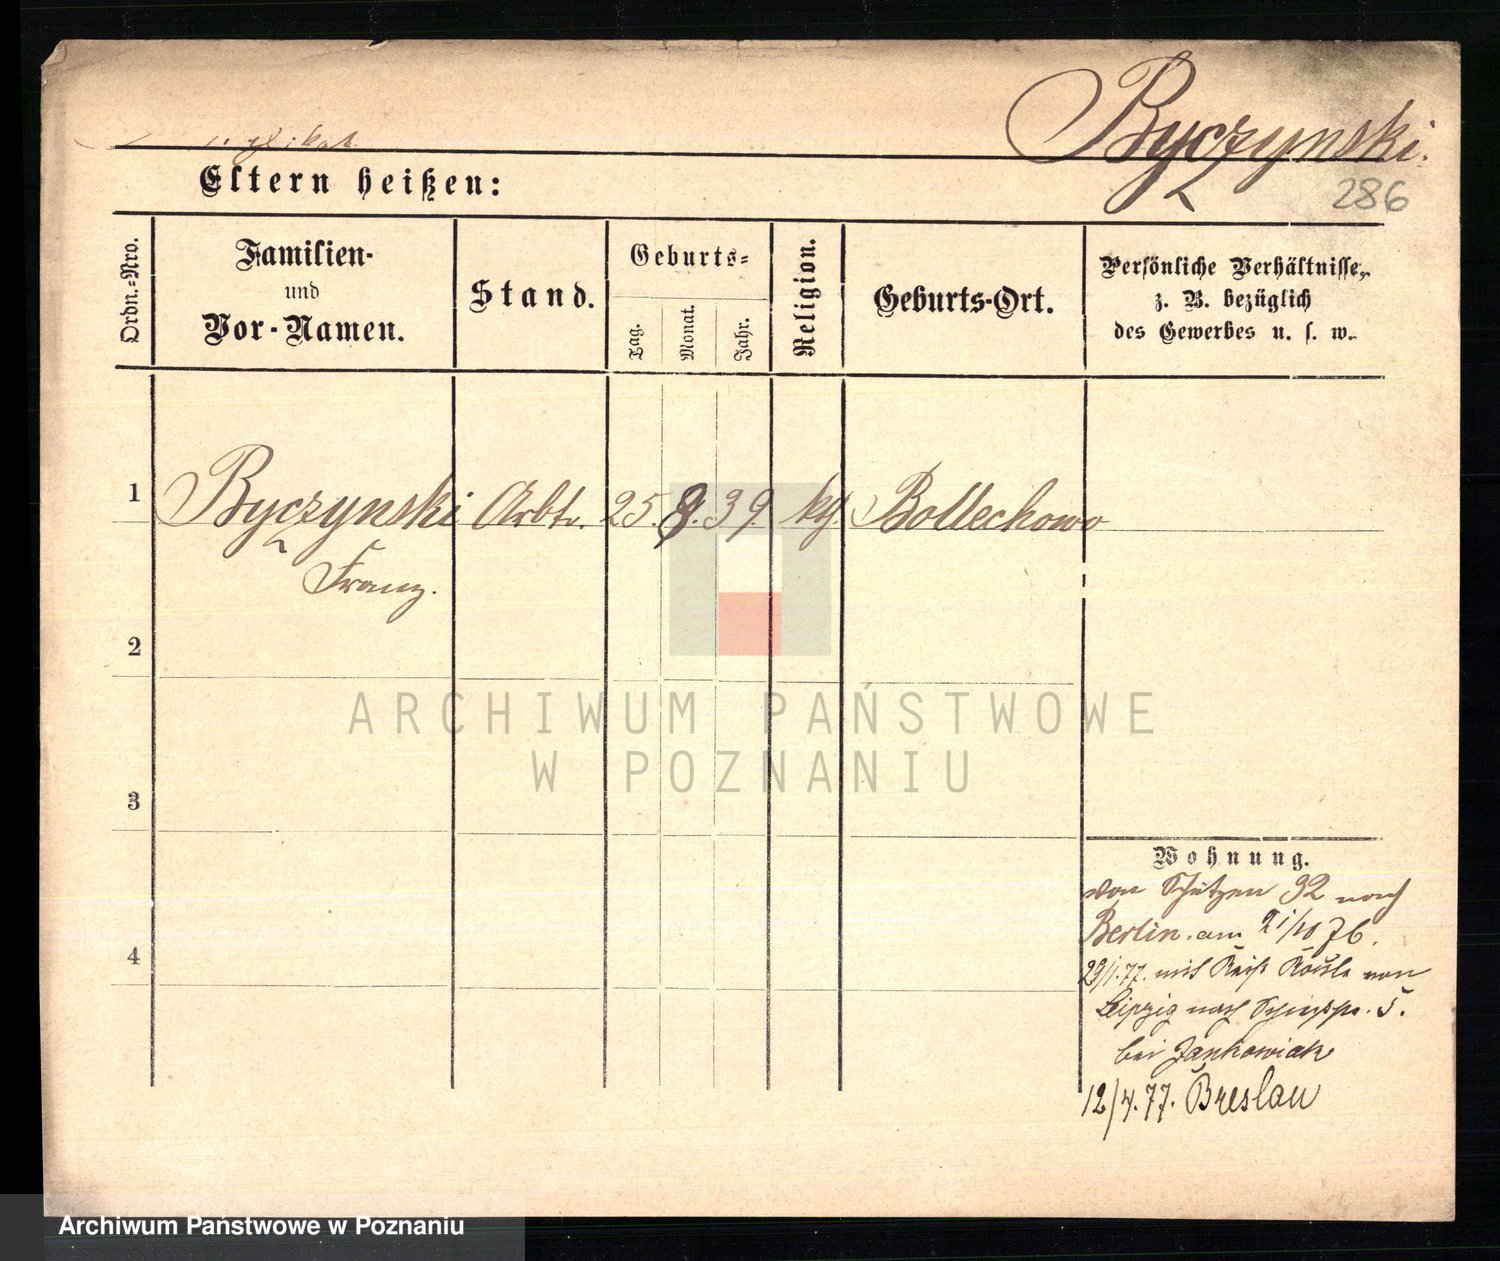 Byczynski.
286
Eltern heißen:
Ordn.=Nro.
Familien-
und
Vor-Namen.
Stand.
Geburts=
Tag.
Monat.
Jahr.
Religion.
Geburts-Ort.
Persönliche Verhältnisse,
z. B. bezüglich
des Gewerbes u. s. w.
1 Byczynski Arbtr. 25. 8. 39. kg. Bollechowo
Franz.
2
3
4
Wohnung.
von Schützen 32 nach
Berlin. am 21/10 76.
29/1.77. mit von
Leipzig nach 5.
bei Jankowiak
12/4.77. Breslau
ARCHIWUM PAŃSTWOWE
W POZNANIU
Archiwum Państwowe w Poznaniu